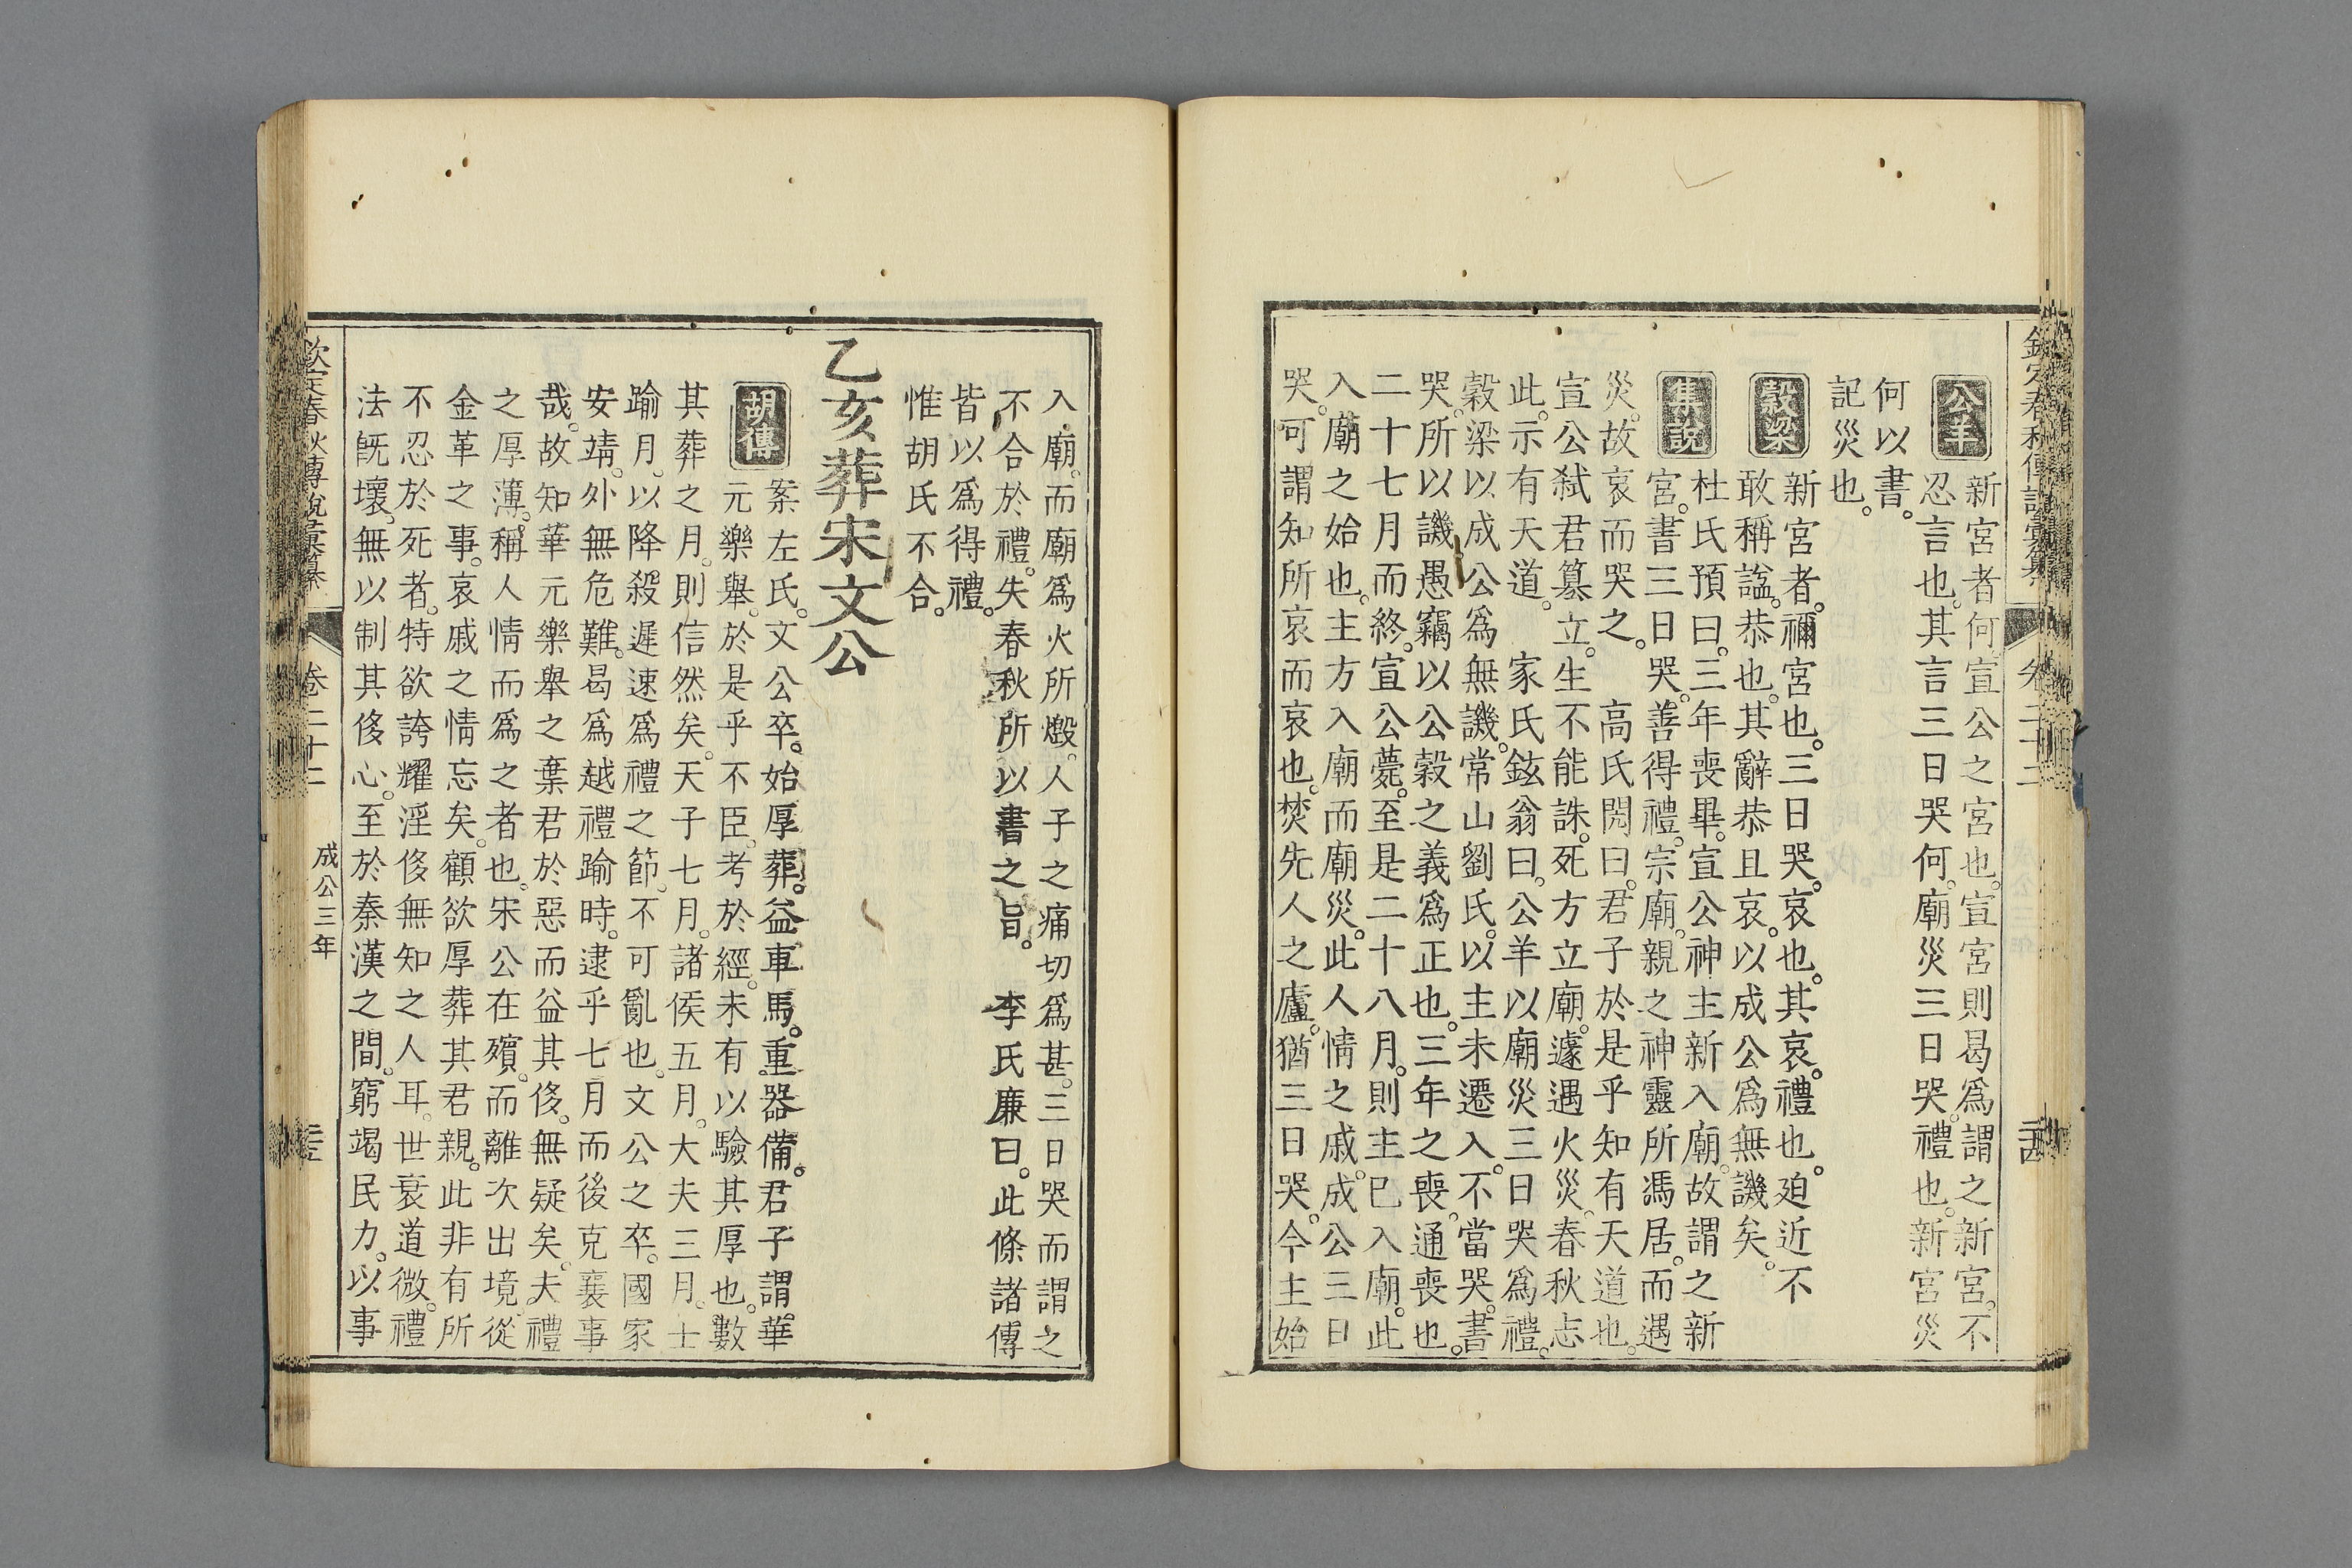 公羊
新宮者何。宣公之宮也。宣宮則曷爲謂之新宮。不
忍言也。其言三日哭何。廟災三日哭。禮也。新宮災
何以書。
記災也。
穀梁
新宮者。禰宮也。三日哭。哀也。其哀。禮也。廹近不
敢稱諡。恭也。其辭恭且哀。以成公爲無譏矣。
集說
杜氏預曰。三年喪畢。宣公神主新入廟。故謂之新
宮。書三日哭。善得禮。宗廟。親之神靈所馮居。而遇
災。故哀而哭之。高氏閌曰。君子於是乎知有天道也。
宣公弒君篡立。生不能誅。死方立廟。遽遇火災。春秋志
此。示有天道。家氏鉉翁曰。公羊以廟災三日哭爲禮。
穀梁以成公爲無譏。常山劉氏。以主未遷入。不當哭。書
哭。所以譏。愚竊以公穀之義爲正也。三年之喪。通喪也。
二十七月而終。宣公薨。至是二十八月。則主已入廟。此
入廟之始也。主方入廟而廟災。此人情之戚。成公三日
哭。可謂知所哀而哀也。焚先人之廬。猶三日哭。今主始
入廟。而廟爲火所燬。人子之痛切爲甚。三日哭而謂之
不合於禮。失春秋所以書之旨。李氏廉曰。此條諸傳
皆以爲得禮。
惟胡氏不合。
乙亥葬宋文公
胡傳
案左氏。文公卒。始厚葬。益車馬。重器備。君子謂。華
元樂舉。於是乎不臣。考於經。未有以驗其厚也。數
其葬之月。則信然矣。天子七月。諸侯五月。大夫三月。士
踰月。以降殺遲速爲禮之節。不可亂也。文公之卒。國家
安靖。外無危難。曷爲越禮踰時。逮乎七月而後克襄事
哉。故知華元樂舉之棄君於惡而益其侈。無疑矣。夫禮
之厚薄。稱人情而爲之者也。宋公在殯。而離次出境。從
金革之事。哀戚之情忘矣。顧欲厚葬其君親。此非有所
不忍於死者。特欲誇耀淫侈無知之人耳。世衰道微。禮
法旣壞。無以制其侈心。至於秦漢之間。窮竭民力。以事
欽定春秋傳說彙纂
卷二十二
成公三年